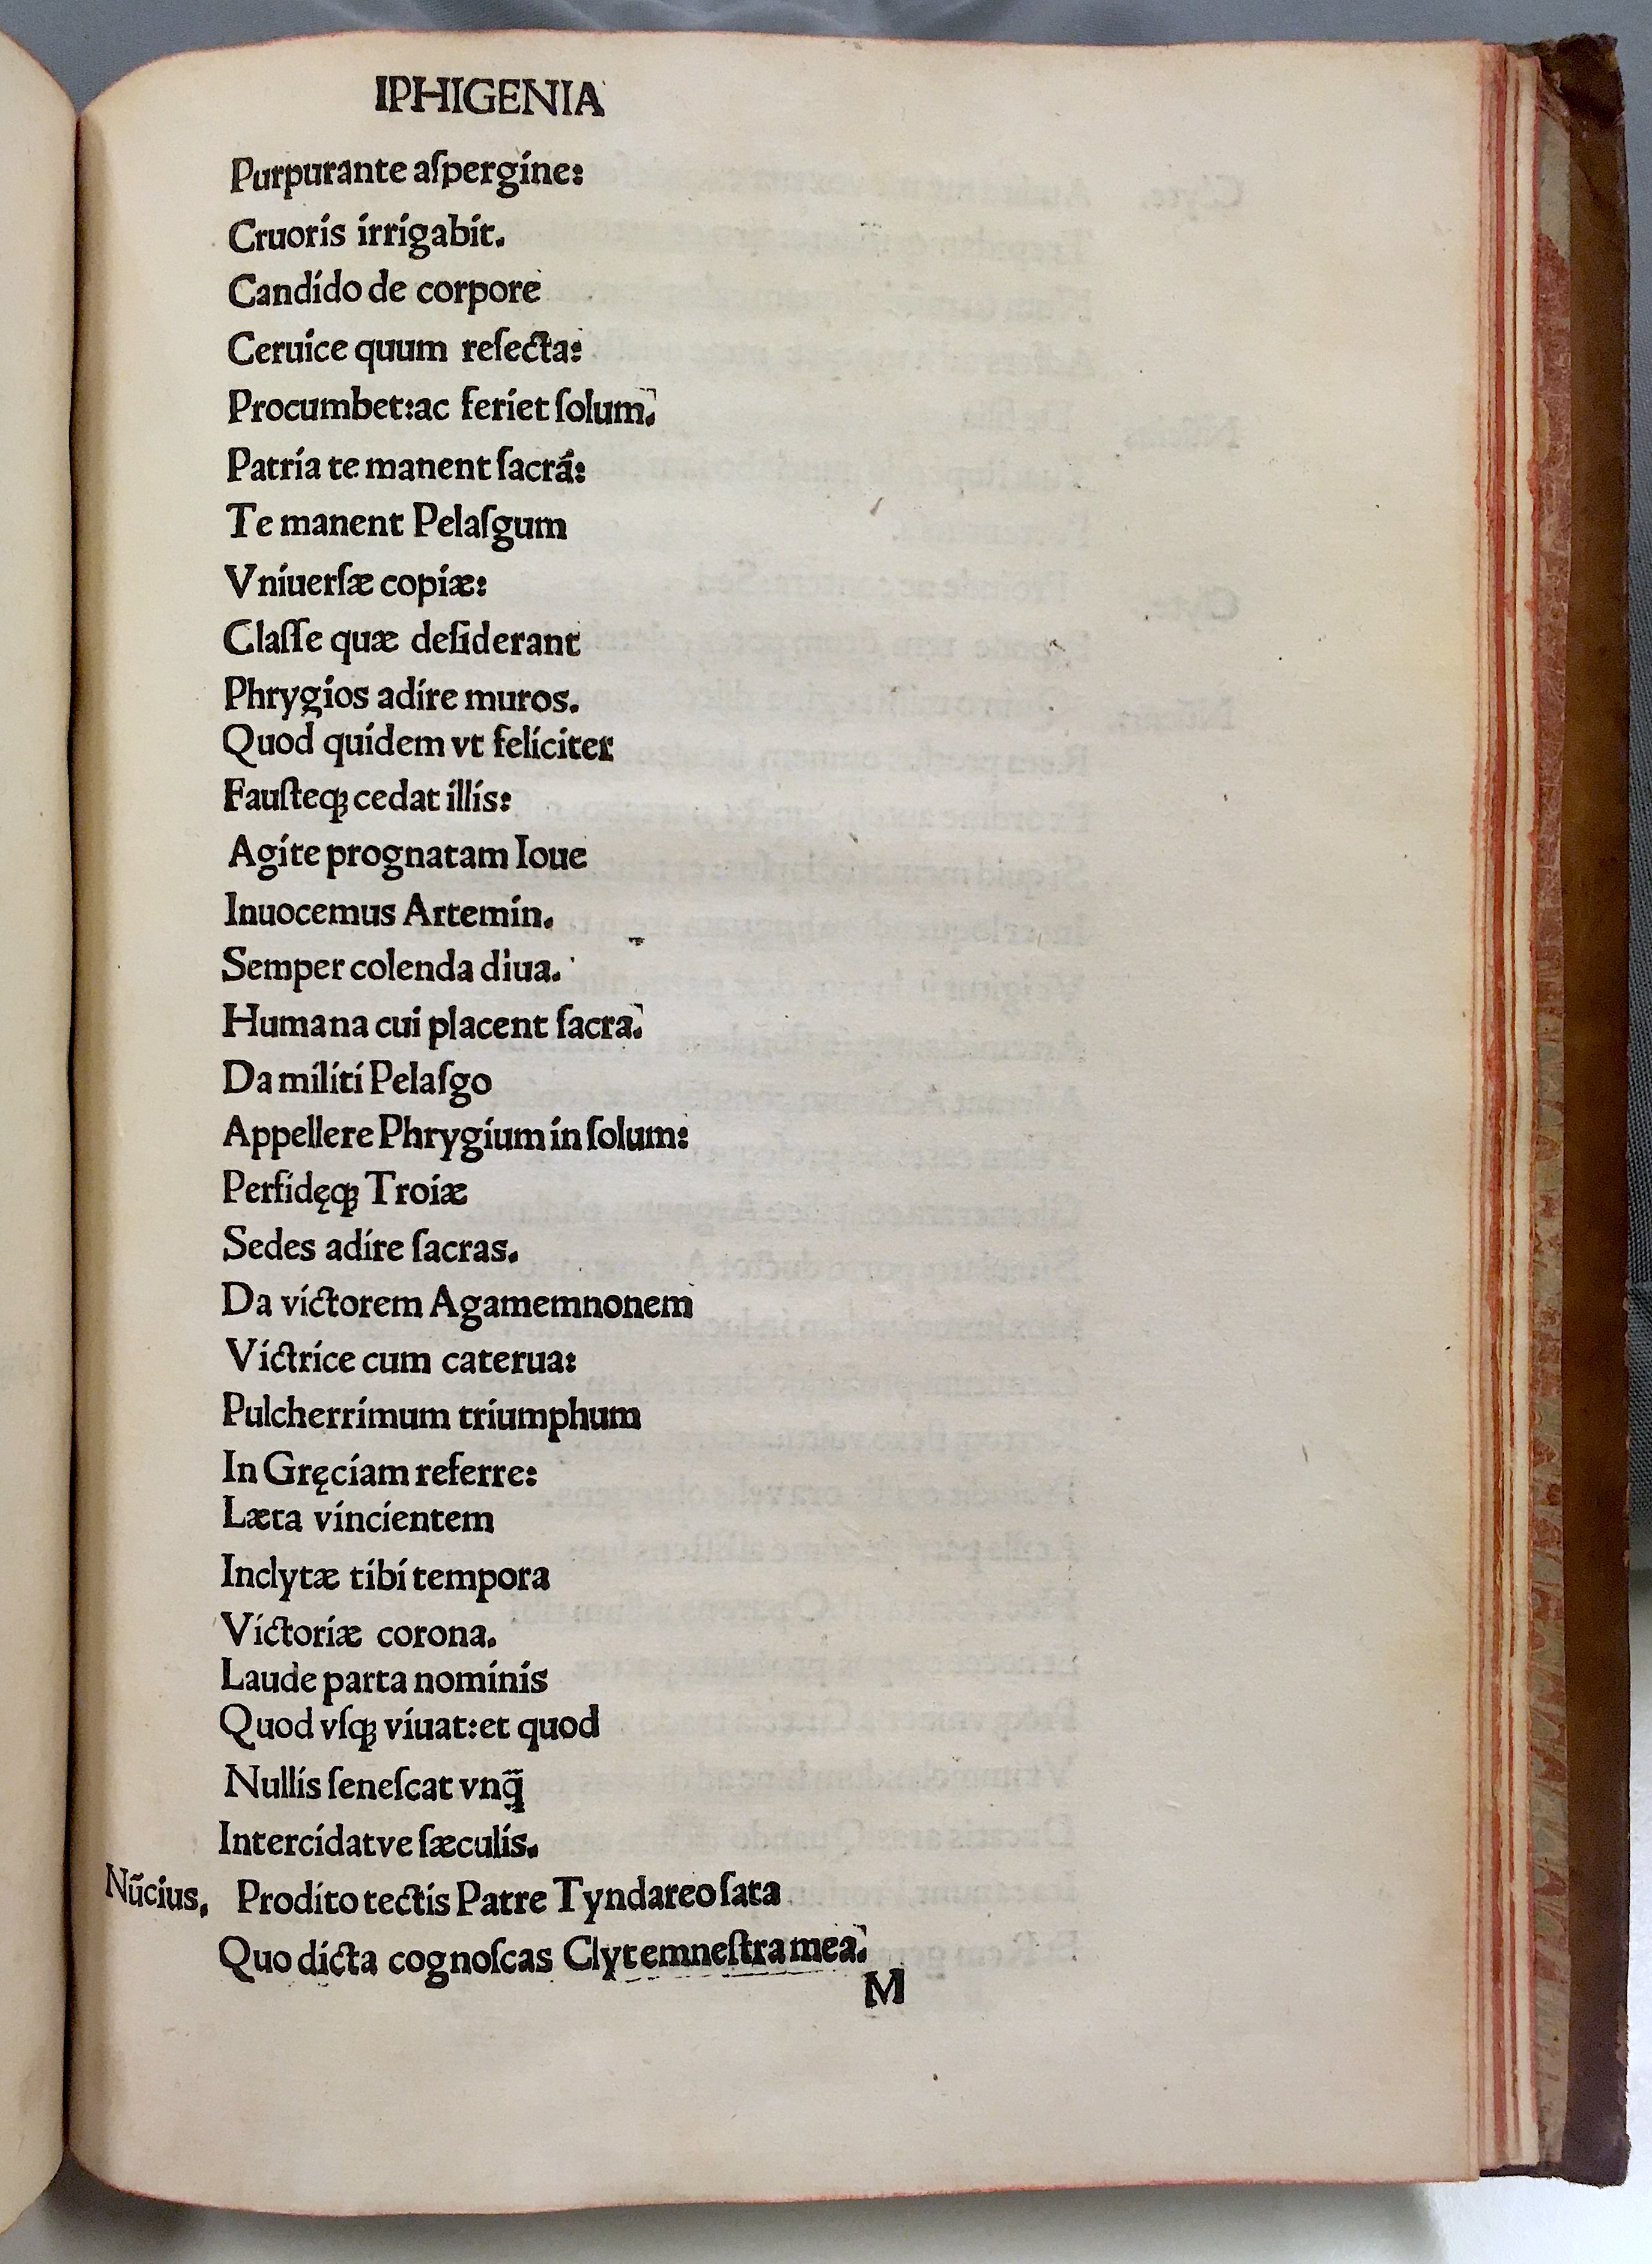 IPHIGENIA
Purpurante aſpergine:
Cruoris irrigabit.
Candido de corpore
Ceruice quum reſecta:
Procumbet:ac feriet ſolum.
Patria te manent ſacra:
Te manent Pelaſgum
Vniuerſæ copiæ:
Claſſe quæ deſiderant
Phrygios adire muros.
Quod quidem vt feliciter
Fauſteqꝫ cedat illis:
Agite prognatam Ioue
Inuocemus Artemin.
Semper colenda diua.
Humana cui placent ſacra.
Da militi Pelaſgo
Appellere Phrygium in ſolum:
Perfidęqꝫ Troiæ
Sedes adire ſacras.
Da victorem Agamemnonem
Victrice cum caterua:
Pulcherrimum triumphum
In Gręciam referre:
Læta vincientem
Inclytæ tibi tempora
Victoriæ corona.
Laude parta nominis
Quod vſqꝫ viuat:et quod
Nullis ſeneſcat vnq̄
Intercidatve ſæculis.
Nūcius. Prodito tectis Patre Tyndareo ſata
Quo dicta cognoſcas Clytemneſtra mea.
M